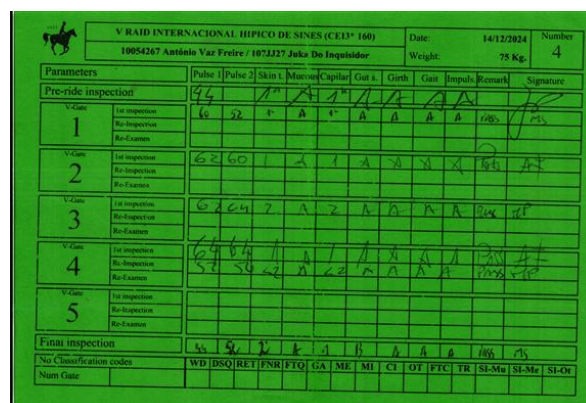 V RAID INTERNACIONAL HIPICO DE SINES (CEI3* 160) Date: 14/12/2024 Number
10054267 António Vaz Freire / 107JJ27 Juka Do Inquisidor Weight: 75 Kg. 4
Parameters Pulse 1 Pulse 2 Skin t. Mucous Capilar Gut s. Girth Gait Impuls. Remark Signature
Pre-ride inspection 44 1" A 1" A A A A
V-Gate 1 1st inspection 60 52 1" A 1" A A A A pass MS
Re-Inspection
Re-Examen
V-Gate 2 1st inspection 62 60 1 A 1 A A A A
Re-Inspection
Re-Examen
V-Gate 3 1st inspection 62 64 2 A 2 A A A A
Re-Inspection
Re-Examen
V-Gate 4 1st inspection 64 64 1 1 A A A A
Re-Inspection
Re-Examen
V-Gate 5 1st inspection
Re-Inspection
Re-Examen
Final inspection A 1 B A A A pass MS
No Classification codes WD DSQ RET FNR FTQ GA ME MI CI OT FTC TR SI-Mu SI-Me SI-Ot
Num Gate